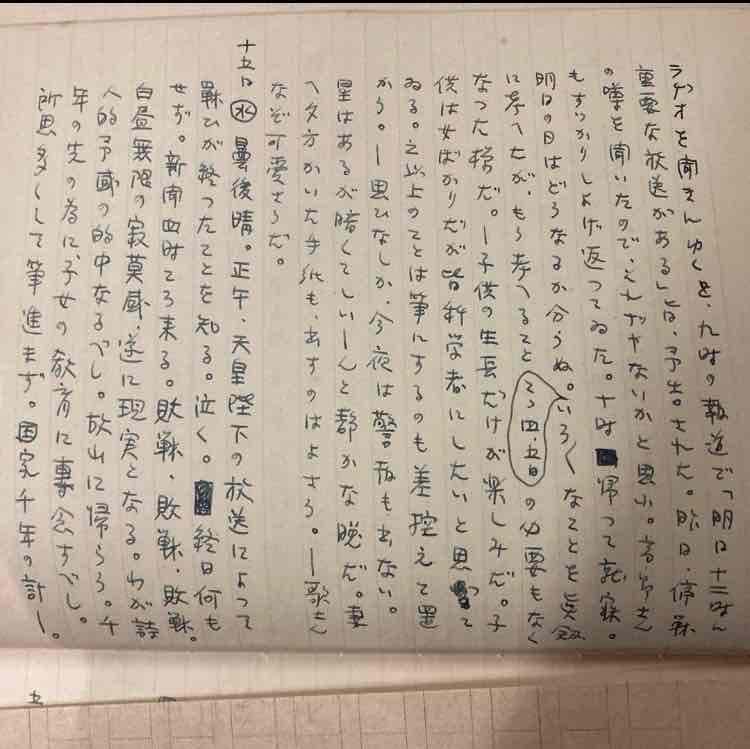 ラヂオを聞きにゆくと、九時の報道で「明日十二時に
重要な放送がある」旨、予告された。昨日、停戦
の噂を聞いたので、それぢやないかと思ふ。
もすつかりしよげ返つてゐた。十時 帰つて就寝。
明日の日はどうなるか分らぬ。いろ〱なことを真剣
に考へたが、もう考へること この四、五日 の必要もなく
なつた様だ。ー子供の生長だけが楽しみだ。子
供は女ばかりだが皆科学者にしたいと思つて
ゐる。之以上のことは筆にするのも差控えて置
かう。ー思ひなしか、今夜は警報も出ない。
星はあるが暗くてしいーんと静かな晩だ。妻
へ夕方かいた手紙も、出すのはよさう。ー歌さん
なぞ可愛さうだ。
十五日 ㊌ 曇後晴。正午、天皇陛下の放送によつて
戦ひが終つたことを知る。泣く。 終日何も
せず。新聞四時ころ来る。敗戦、敗戦、敗戦。
白昼無限の寂莫感、遂に現実となる。わが詩
人的予感の的中なるべし。故山に帰らう。千
年の先の為に、子女の教育に専念すべし。
所思多くして筆進まず。国家千年の計ー。